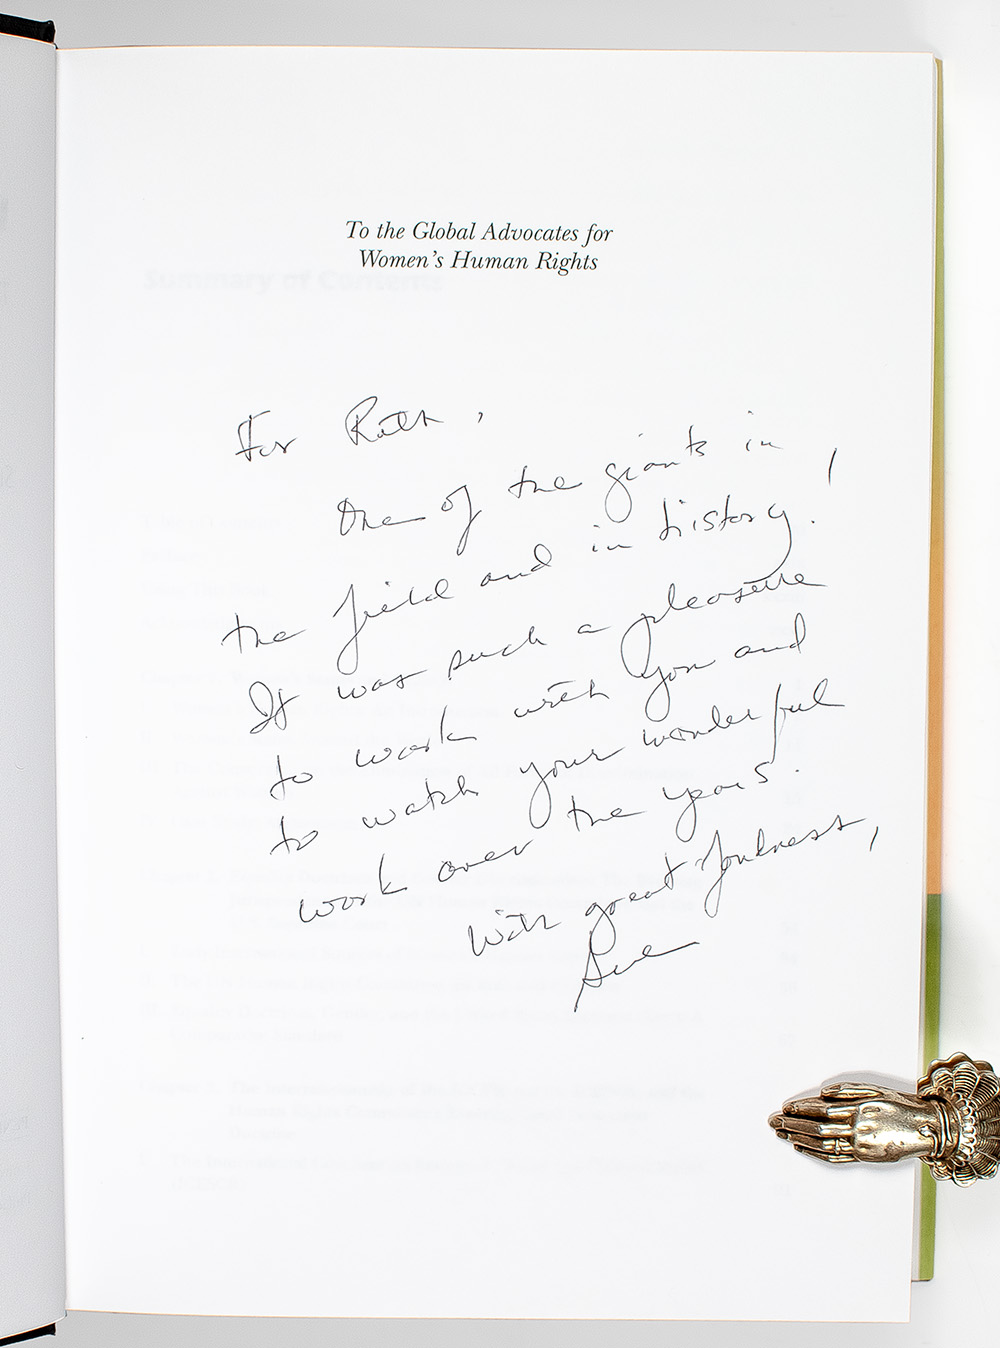 To the Global Advocates for
Women's Human Rights
Summary of Contents
For Ruth,
One of the giants in
the field and in history!
It was such a pleasure
to work with you and
to watch your wonderful
work over the years.
With great fondness,
Sue